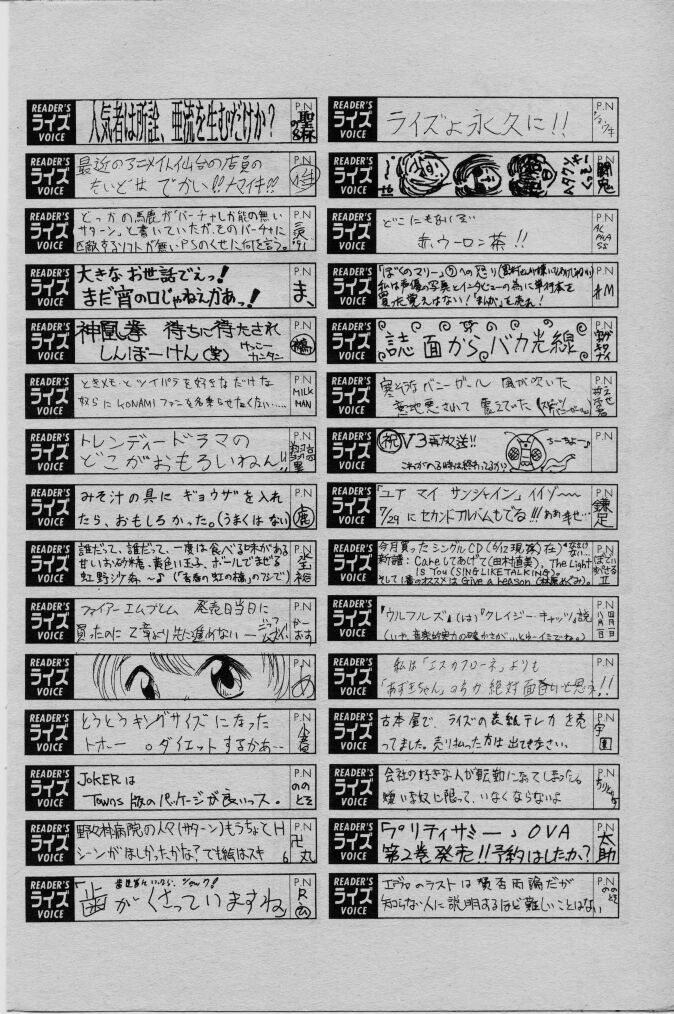 READER'S
ライズ
VOICE
人気者は所詮、亜流を生むだけか?
P.N
聖杯
READER'S
ライズ
VOICE
最近のアニメイト仙台の店員の
でかい!!
P.N
READER'S
ライズ
VOICE
どっかの馬鹿が「バーチャしか能の無い
サターン」と書いていたが、そのバーチャに
匹敵するソフトが無いPSのくせに何を言う。
P.N
READER'S
ライズ
VOICE
大きなお世話でえっ!
まだ宵の口じゃねえかあっ!
P.N
ま、
READER'S
ライズ
VOICE
神凰拳 待ちに待たされ
しんぼーけん(笑)
けっこー
カンタン
P.N
橋
READER'S
ライズ
VOICE
ときメモとツインパラを好きなだけな
奴らにKONAMIファンを名乗らせなくない……
P.N
MILK
MAN
READER'S
ライズ
VOICE
トレンディードラマの
どこがおもろいねん!!
P.N
READER'S
ライズ
VOICE
みそ汁の具に ギョウザを入れ
たら、おもしろかった。(うまくはない)
P.N
鹿
READER'S
ライズ
VOICE
誰だって、誰だって、一度は食べる味がある
甘いお砂糖、黄色い玉子、ボールでまぜる
虹野沙希〜♪(「青春の虹の橋」のフシで)
P.N
READER'S
ライズ
VOICE
ファイアーエムブレム 発売日当日に
買ったのに2章より先に進めない――
P.N
かー
おす
READER'S
ライズ
VOICE
P.N
め
READER'S
ライズ
VOICE
とうとうキングサイズになった
トホー。ダイエットするかあ…
P.N
READER'S
ライズ
VOICE
JOKERは
Towns版のパッケージが良いっス。
P.N
ののとそ
READER'S
ライズ
VOICE
野々村病院の人々(サターン)もうちょてH
シーンがほしかったかな?でも絵はスキ
P.N
卍
6 丸
READER'S
ライズ
VOICE
「歯がくさっていますね」
P.N
R
READER'S
ライズ
VOICE
ライズよ永久に!!
P.N
READER'S
ライズ
VOICE
P.N
READER'S
ライズ
VOICE
どこにもないぞ
赤ウーロン茶!!
P.N
ALPHA
SS
READER'S
ライズ
VOICE
「ぼくのマリー」⑦への怒り
私は声優の写真とインタビューの為に単行本を
買った覚えはない!「まんが」を売れ!
P.N
#M
READER'S
ライズ
VOICE
誌面からバカ光線
P.N
READER'S
ライズ
VOICE
寒そうなバニーガール 風が吹いた
意地悪されて 震えていた
P.N
READER'S
ライズ
VOICE
祝 V3再放送!!
これがのる時は終わってるか?
P.N
READER'S
ライズ
VOICE
「ユア マイ サンシャイン」イイゾ〜〜
7/29にセカンドアルバムもでる!!!ああ幸せ…
P.N
鎌
足
READER'S
ライズ
VOICE
今月買ったシングルCD(6/12現在)
新譜:Careしてあげて(田村直美)、The Light
Is You(SING LIKE TALKING)。
そして1番のオススメはGive a Reason(林原めぐみ)。
P.N
READER'S
ライズ
VOICE
『ウルフルズ』(は)『クレイジーキャッツ』説
(いや、音楽的実力の確かさが…とゆーイミでね。)
P.N
四月一日
八月一日
READER'S
ライズ
VOICE
私は「エスカフローネ」よりも
「あずきちゃん」のぢが絶対面白いと思う!!
P.N
READER'S
ライズ
VOICE
古本屋で、ライズの表紙テレカを売
ってました。売り払った方は出てきなさい。
P.N
宇
園
READER'S
ライズ
VOICE
会社の好きな人が転勤になってしまった。
嫌いな奴に限って、いなくならないよ
P.N
READER'S
ライズ
VOICE
「プリティサミー」OVA
第2巻発売!!予約はしたか?
P.N
太
助
READER'S
ライズ
VOICE
エヴァのラストは賛否両論だが
知らない人に説明するほど難しいことはない
P.N
ののとそ